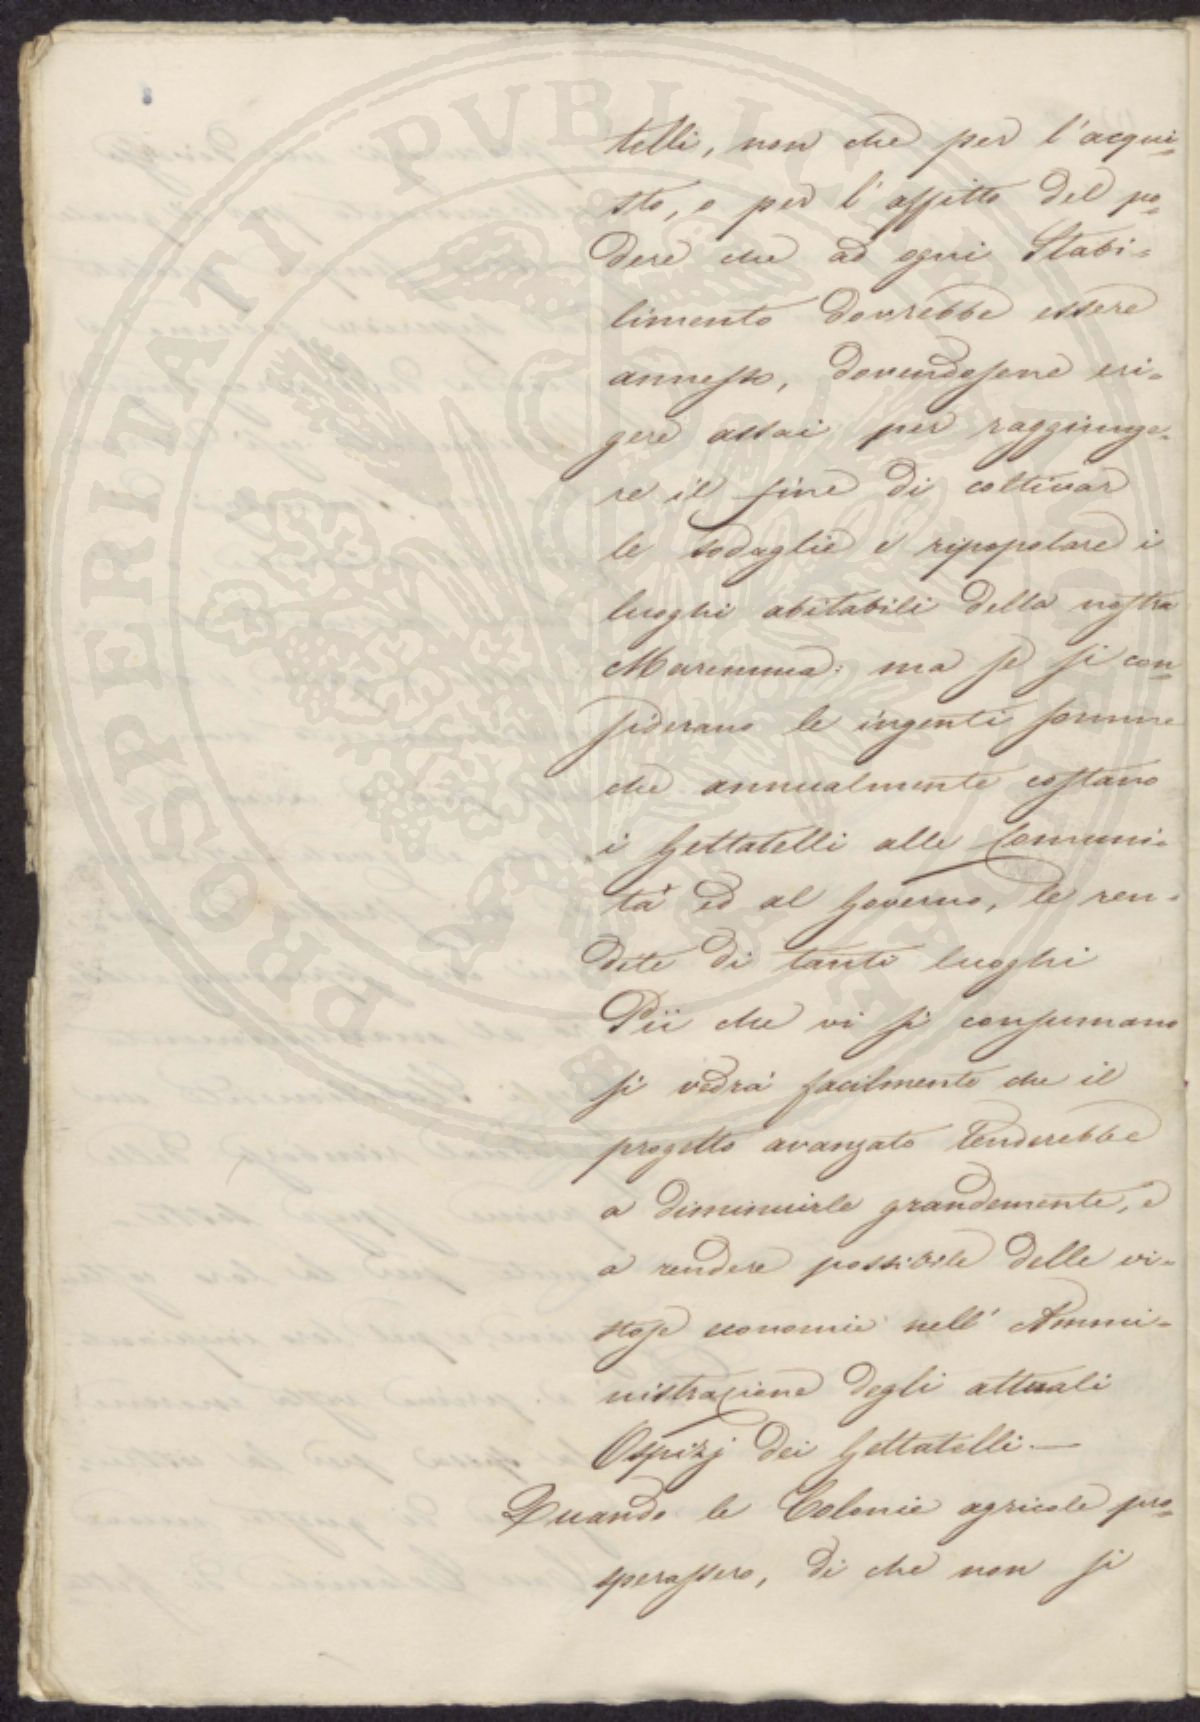 telli, non che per l'acqui=
sto, o per l'affitto del po=
dere che ad ogni Stabi=
limento dovrebbe essere
annesso, dovendosene eri=
gere assai per raggiunge=
re il fine di coltivar
le sodaglie e ripopolare i
luoghi abitabili della nostra
Maremma: ma se si con=
siderano le ingenti somme
che annualmente costano
i Gettatelli alle Comuni=
tà ed al Governo, le ren=
dite di tanti luoghi
Pii che vi si consumano
si vedrà facilmente che il
progetto avanzato tenderebbe
a diminuirle grandemente, e
a rendere possibile delle vi=
stose economie nell' Ammi=
nistrazione degli attuali
Ospizj dei Gettatelli.—
Quando le Colonie agricole pro=
sperassero, di che non si
PROSPERITATI PUBLICAE